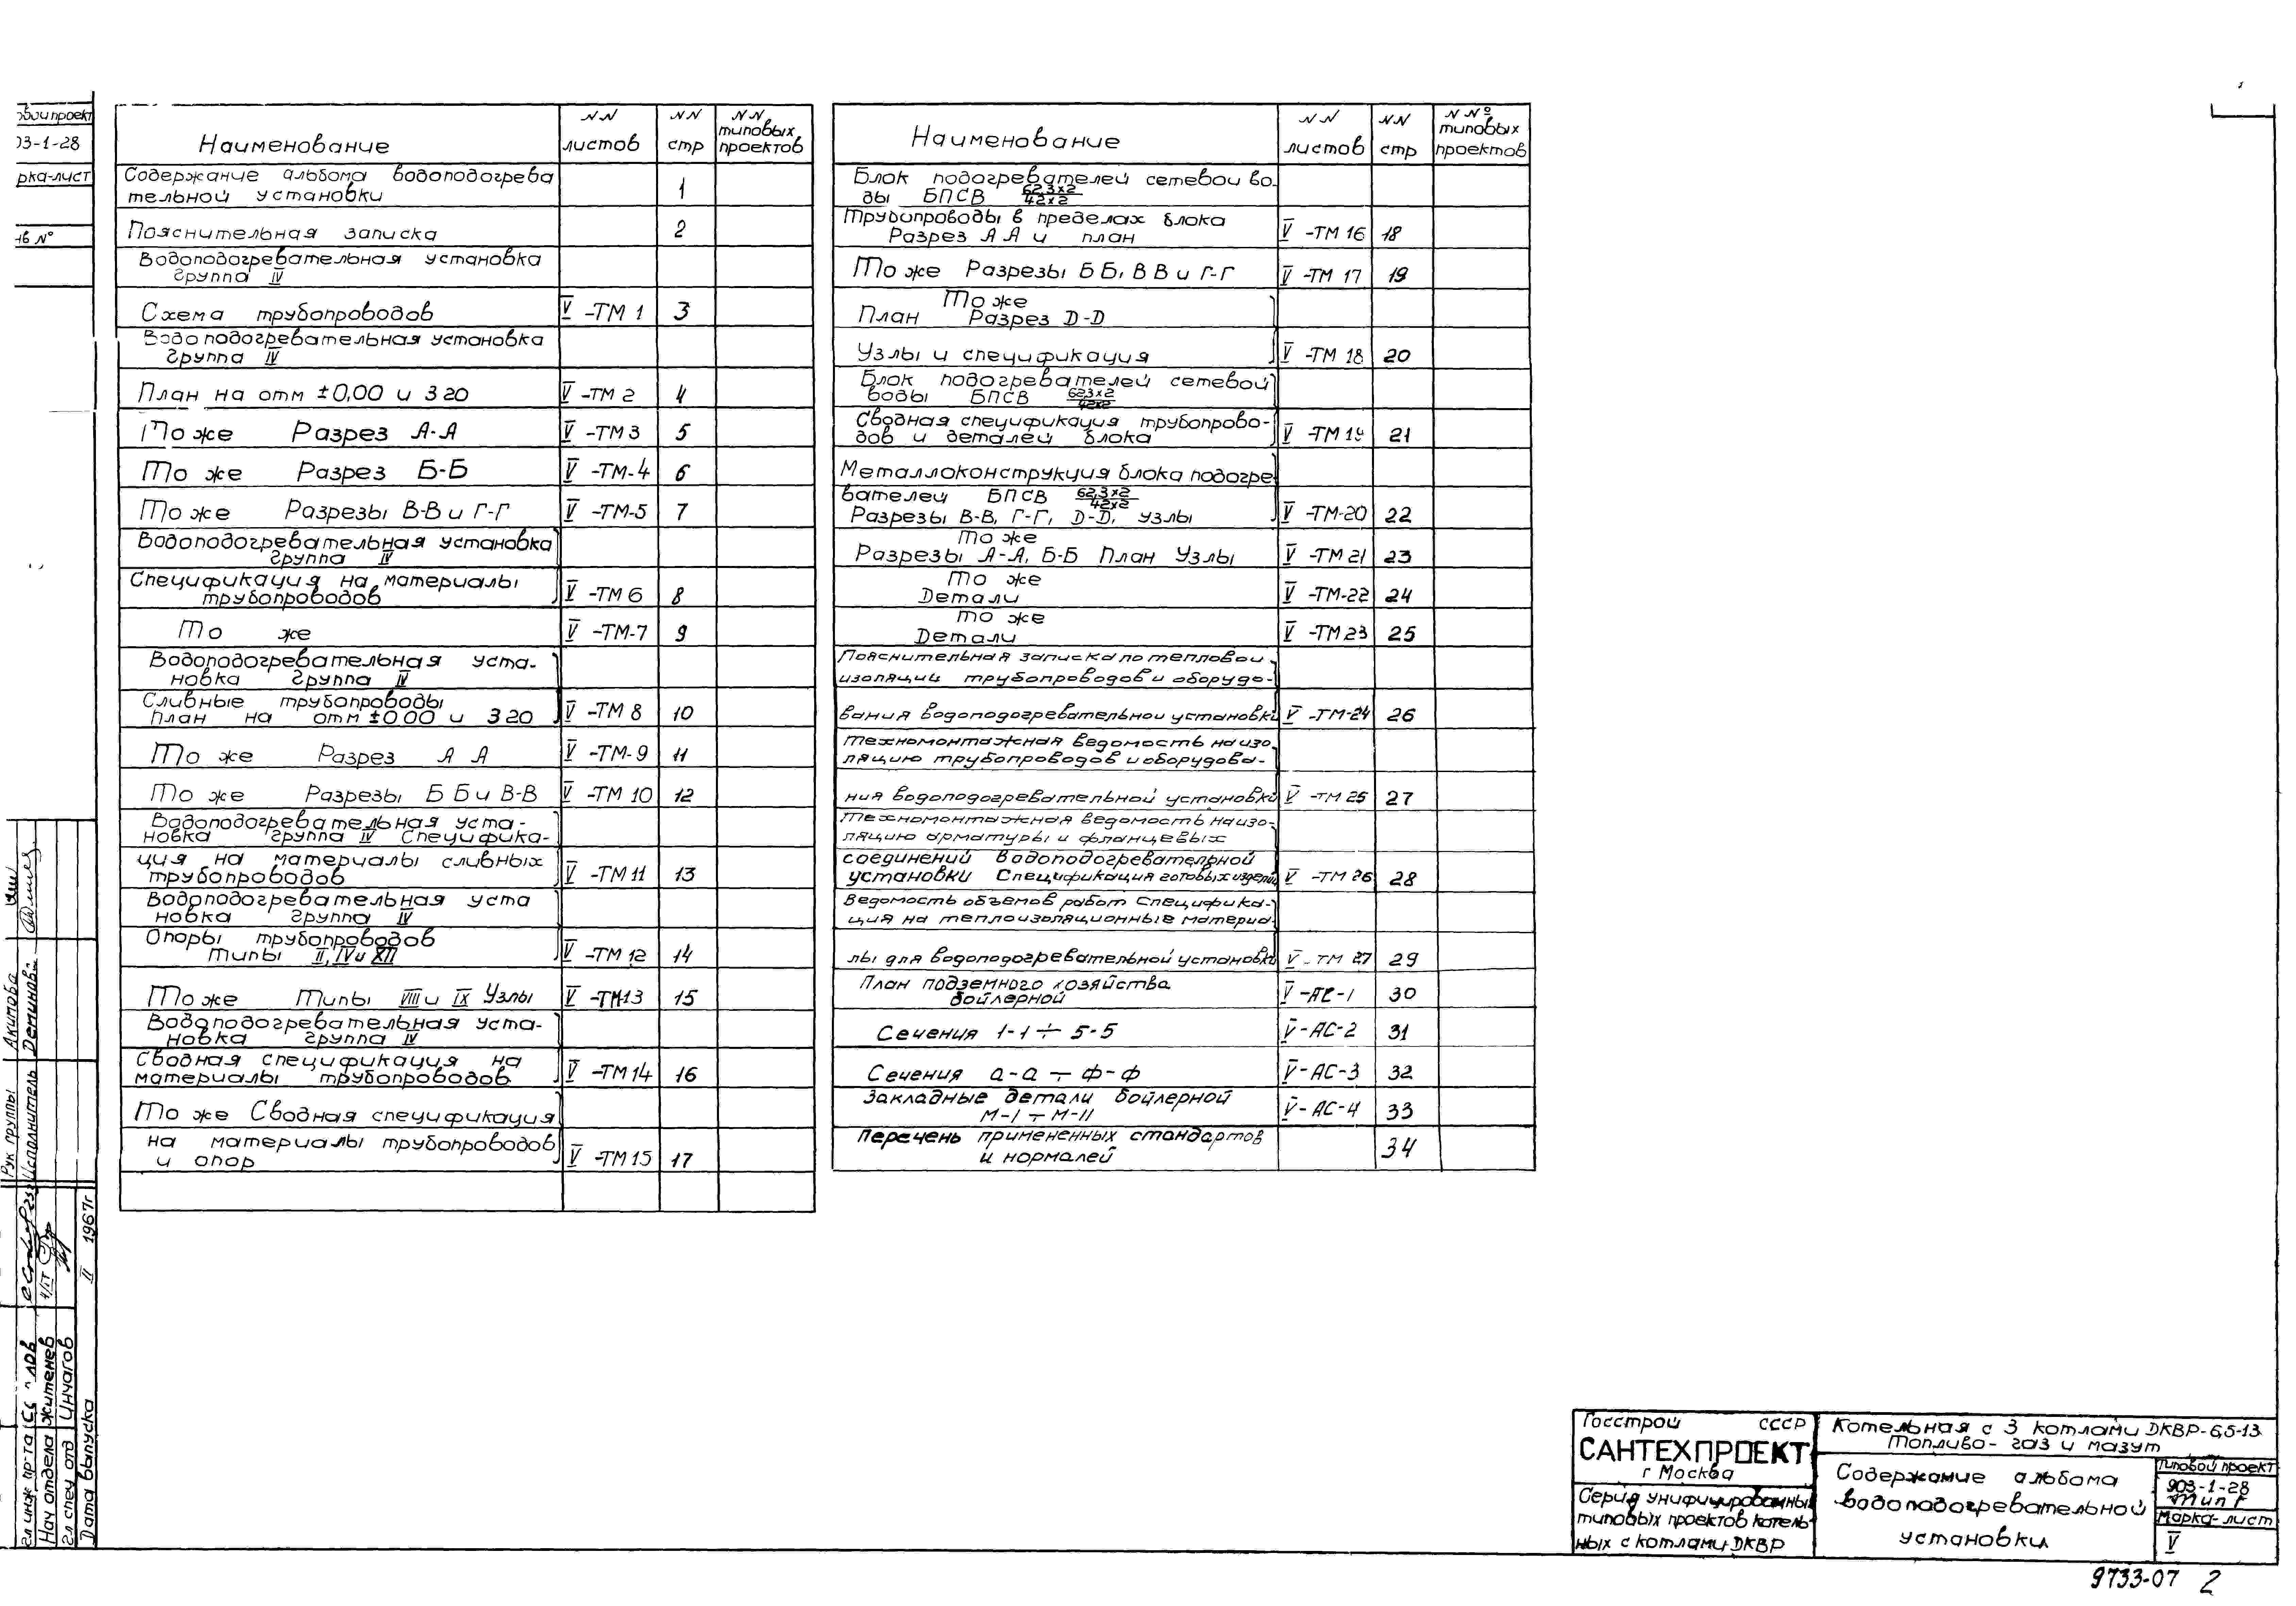 овой проект
03-1-28
рка-лист
нв №
Наименование
NN листов
NN стр
NN типовых проектов
Содержание альбома водоподогрева
тельной установки 1
Пояснительная записка 2
Водоподогревательная установка
группа IV
Схема трубопроводов V -ТМ 1 3
Водоподогревательная установка
группа IV
План на отм ±0,00 и 3 20 V -ТМ 2 4
То же Разрез А-А V -ТМ 3 5
То же Разрез Б-Б V -ТМ-4 6
То же Разрезы В-В и Г-Г V -ТМ-5 7
Водоподогревательная установка
группа IV
Спецификация на материалы
трубопроводов V -ТМ 6 8
То же V -ТМ-7 9
Водоподогревательная уста-
новка группа IV
Сливные трубопроводы
план на отм ±0 00 и 3 20 V -ТМ 8 10
То же Разрез А А V -ТМ-9 11
То же Разрезы Б Б и В-В V -ТМ 10 12
Водоподогревательная уста-
новка группа IV Специфика-
ция на материалы сливных
трубопроводов V -ТМ 11 13
Водоподогревательная уста
новка группа IV
Опоры трубопроводов
Типы II, IV и XII V -ТМ 12 14
То же Типы VIII и IX Узлы V -ТМ13 15
Водоподогревательная уста-
новка группа IV
Сводная спецификация на
материалы трубопроводов V -ТМ 14 16
То же Сводная спецификация
на материалы трубопроводов
и опор V -ТМ 15 17
Наименование
NN листов
NN стр
N Nº типовых проектов
Блок подогревателей сетевои во-
ды БПСВ 62,3×2/42×2
Трубопроводы в пределах блока
Разрез А А и план V -ТМ 16 18
То же Разрезы Б Б, В В и Г-Г V -ТМ 17 19
То же
План Разрез D-D
Узлы и спецификация V -ТМ 18 20
Блок подогревателей сетевой
воды БПСВ 62,3×2/42×2
Сводная спецификация трубопрово-
дов и деталей блока V -ТМ 19 21
Металлоконструкция блока подогре
вателей БПСВ 62,3×2/42×2
Разрезы В-В, Г-Г, D-D, узлы V -ТМ-20 22
То же
Разрезы А-А, Б-Б План Узлы V -ТМ 21 23
То же
Детали V -ТМ-22 24
То же
Детали V -ТМ 23 25
Пояснительная записка по тепловои
изоляции трубопроводов и оборудо-
вания водоподогревательной установки V -ТМ-24 26
Техномонтажная ведомость на изо-
ляцию трубопроводов и оборудова-
ния водоподогревательной установки V -ТМ 25 27
Техномонтажная ведомость на изо-
ляцию арматуры и фланцевых
соединений водоподогревательной
установки Спецификация готовых изделий V -ТМ 26 28
Ведомость объемов работ Специфика-
ция на теплоизоляционные материа-
лы для водоподогревательной установки V - ТМ 27 29
План подземного хозяйства
бойлерной V -АС-1 30
Сечения 1-1 ÷ 5-5 V - АС-2 31
Сечения а-а ÷ ф-ф V - АС-3 32
Закладные детали бойлерной
М-1 ÷ М-11 V - АС-4 33
Перечень примененных стандартов
и нормалей 34
Рук группы Акимова
Исполнитель Деминова
гл инж пр-та
Нач отдела Житенев
гл спец отд Инчагов
Дата выпуска II 1967г
Госстрой СССР
САНТЕХПРОЕКТ
г Москва
Серия унифицированных
типовых проектов котель
ных с котлами ДКВР
Котельная с 3 котлами ДКВР-6,5-13
Топливо- газ и мазут
Содержание альбома
водоподогревательной
установки
Типовой проект
903-1-28
тип Г
Марка-лист
V
9733-07 2